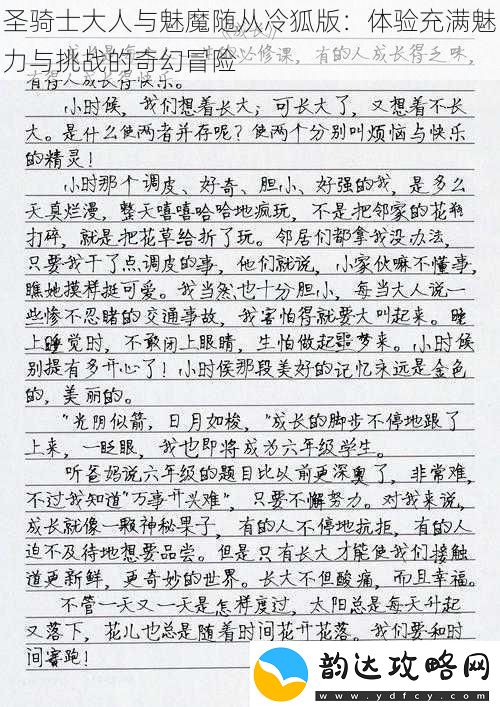 圣骑士大人与魅魔随从冷狐版：体验充满魅
力与挑战的奇幻冒险
必修课，有的人成长得乏味，
有得人成长得快乐。
小时候，我们想着长大；可长大了，又想着不长
大。是什么使两者并存呢？使两个分别叫烦恼与快乐
的精灵！
小时那个调皮、好奇、胆小、好强的我，是多么
天真烂漫，整天嘻嘻哈哈地疯玩，不是把邻家的花瓶
打碎，就是把花草给折了玩。邻居们都拿我没办法，
只要我干了点调皮的事，他们就说，小家伙嘛不懂事，
瞧她摸样挺可爱。我当然也十分胆小，每当大人说一
些惨不忍睹的交通事故，我害怕得就要大叫起来。晚
上睡觉时，不敢闭上眼睛，生怕做起噩梦来。小时候
别提有多开心了！小时侯那段美好的记忆永远是金色
的，美丽的。
"光阴似箭，日月如梭，"成长的脚步不停地跟了
上来，一眨眼，我也即将成为六年级学生。
听爸妈说六年级的题目比以前更深奥了，非常难，
不过我知道"万事开兴难"，只要不懈努力。对我来说，
成长就像一颗神秘果子，有的人不停地抗拒，有的人
迫不及待地想要品尝。但是只有长大才能使我们接触
道更新鲜，更奇妙的世界。长大不但酸痛，而且幸福。
不管一天又一天是怎样度过，太阳总是每天升起
又落下，花儿也总是随着时间花开花落。我们要和时
间赛跑！
韵达攻略网
www.ydfcy.com